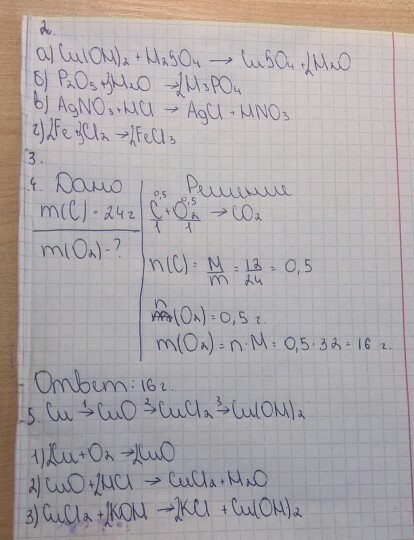 2.
а) Cu(OH)2 + H2SO4 → CuSO4 + 2H2O
б) P2O5 + 3H2O → 2H3PO4
в) AgNO3 + HCl → AgCl + HNO3
г) 2Fe + 3Cl2 → 2FeCl3
3.
4. Дано Решение
m(C) - 24 г
0,5 0,5
C + O2 → CO2
1 1
m(O2) - ?
n(C) = M/m = 12/24 = 0,5
n(O2) = 0,5 г.
m(O2) = n · M = 0,5 · 32 = 16 г.
Ответ: 16 г.
5. Cu 1→ CuO 2→ CuCl2 3→ Cu(OH)2
1) 2Cu + O2 → 2CuO
2) CuO + 2HCl → CuCl2 + H2O
3) CuCl2 + 2KOH → 2KCl + Cu(OH)2